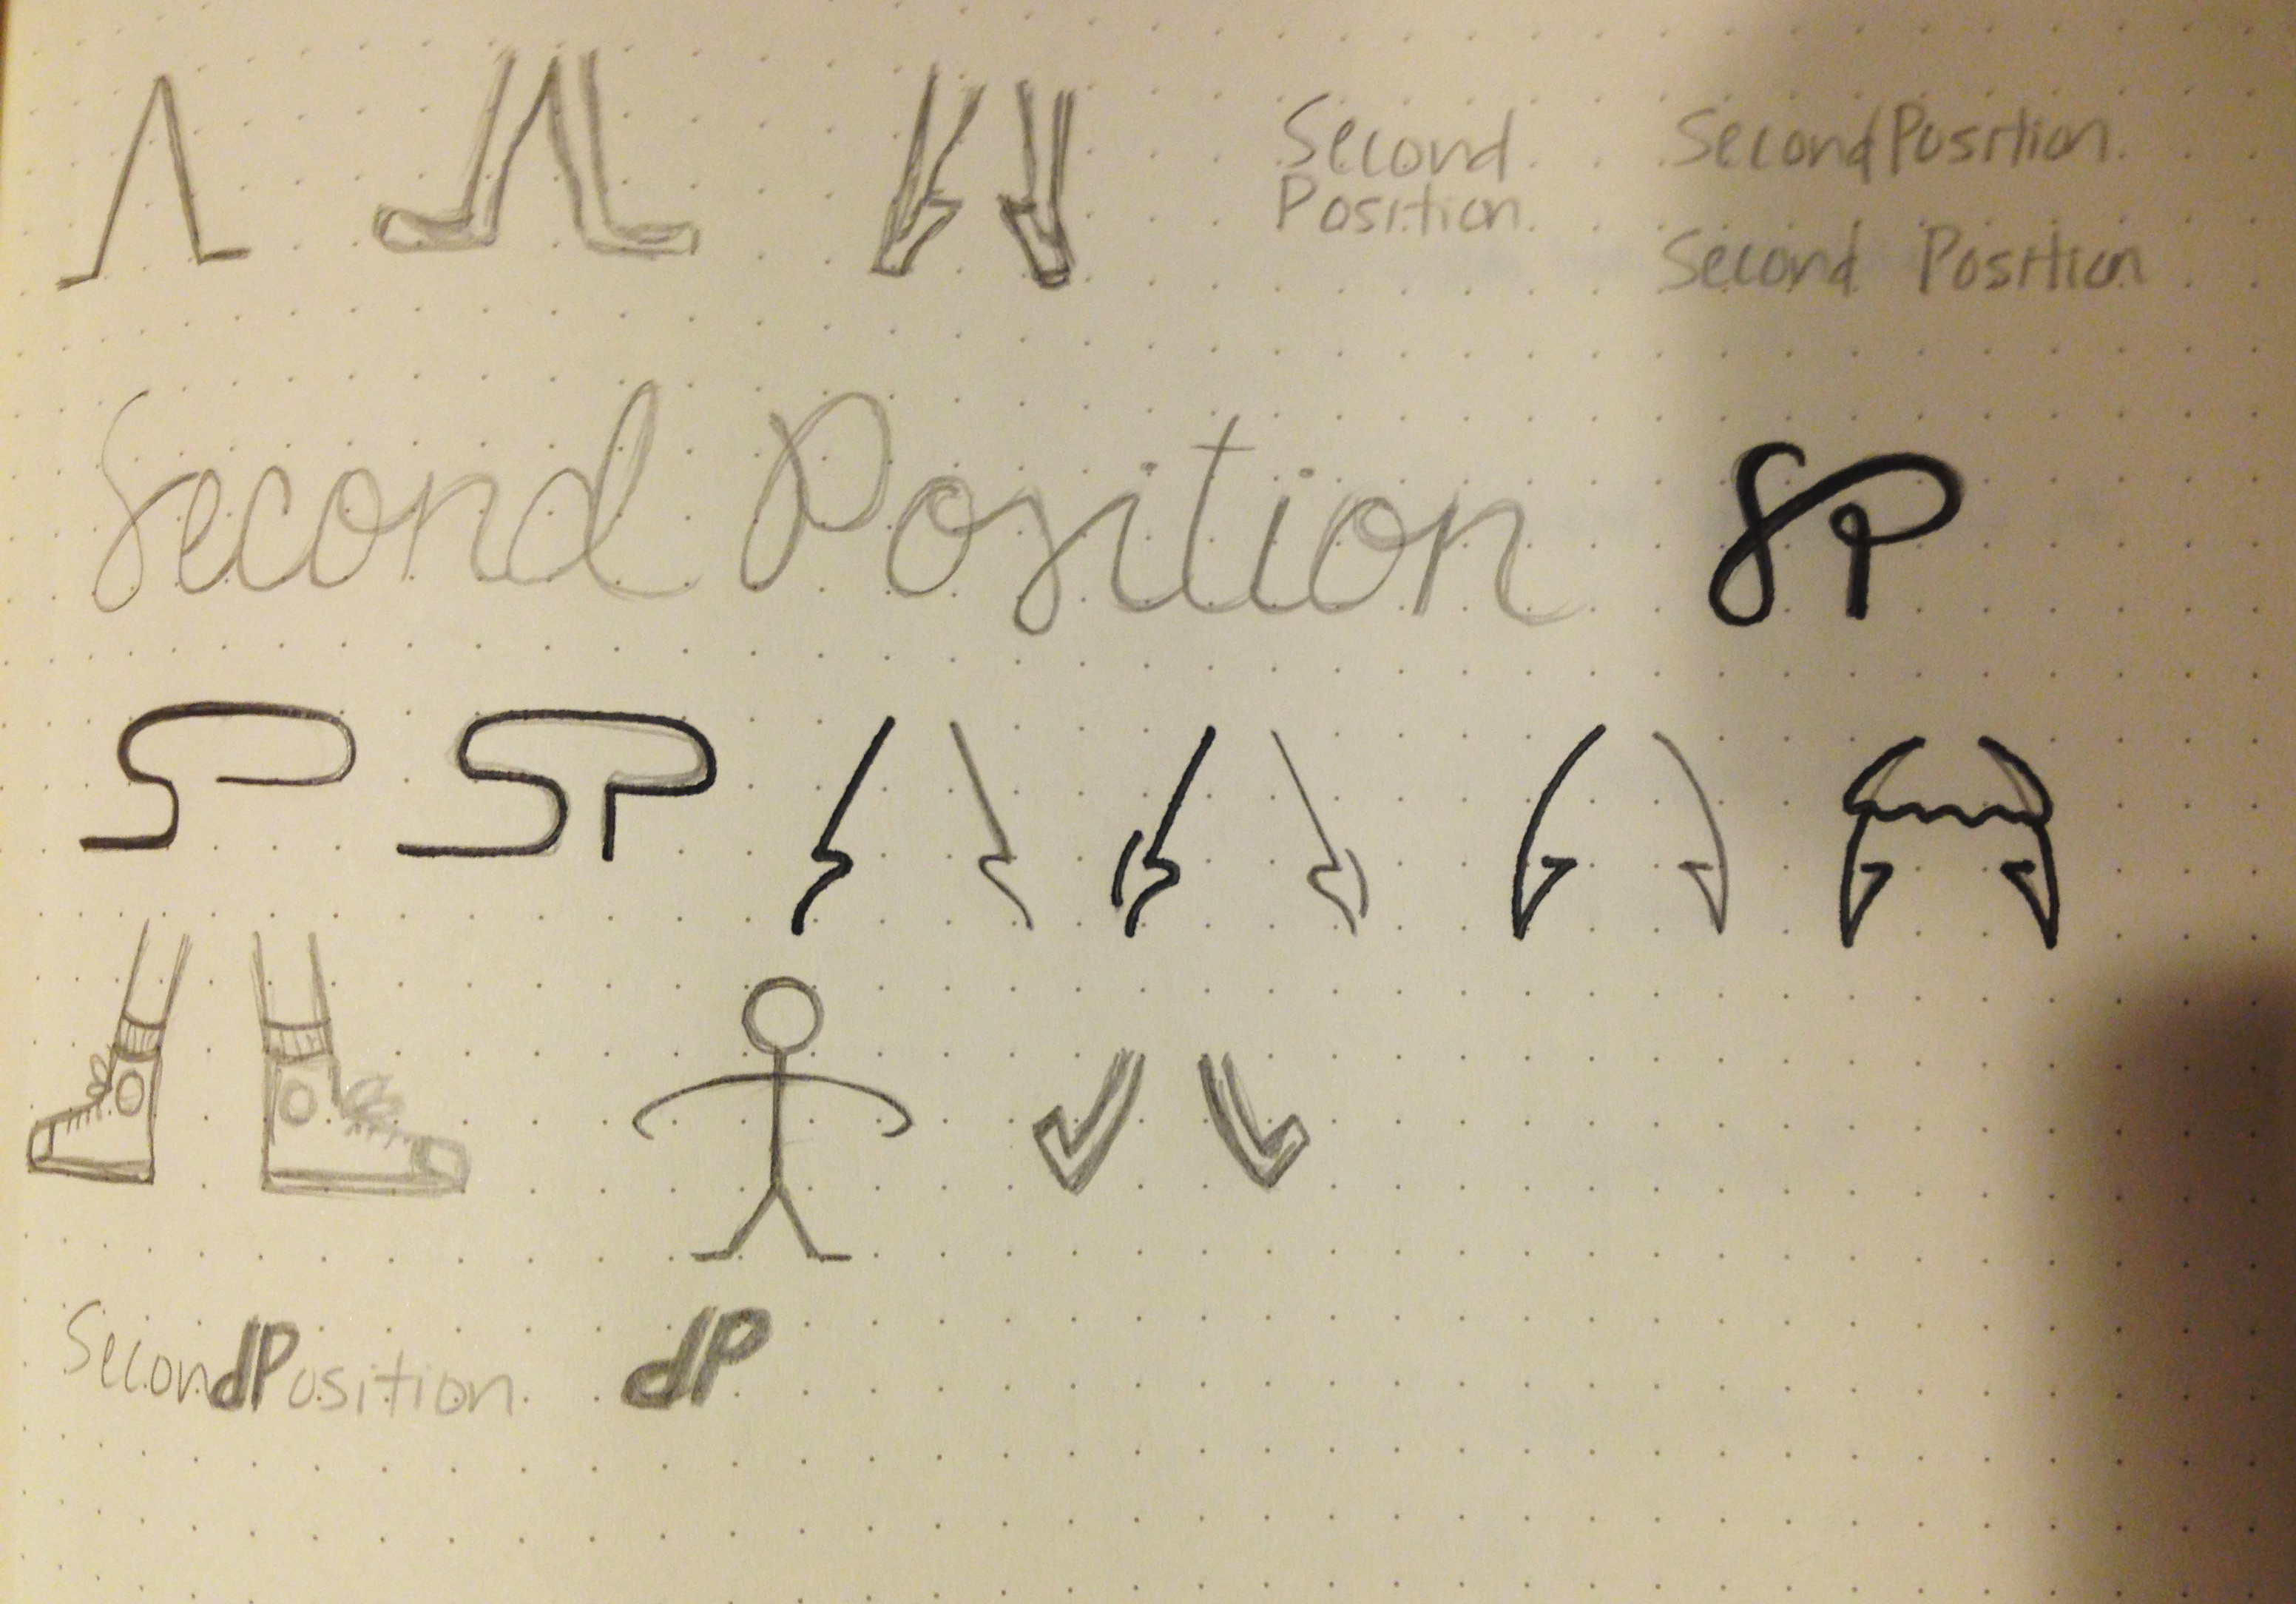 Second
Position
SecondPosition
Second Position
Second Position
SP
S
SP
SecondPosition
dP